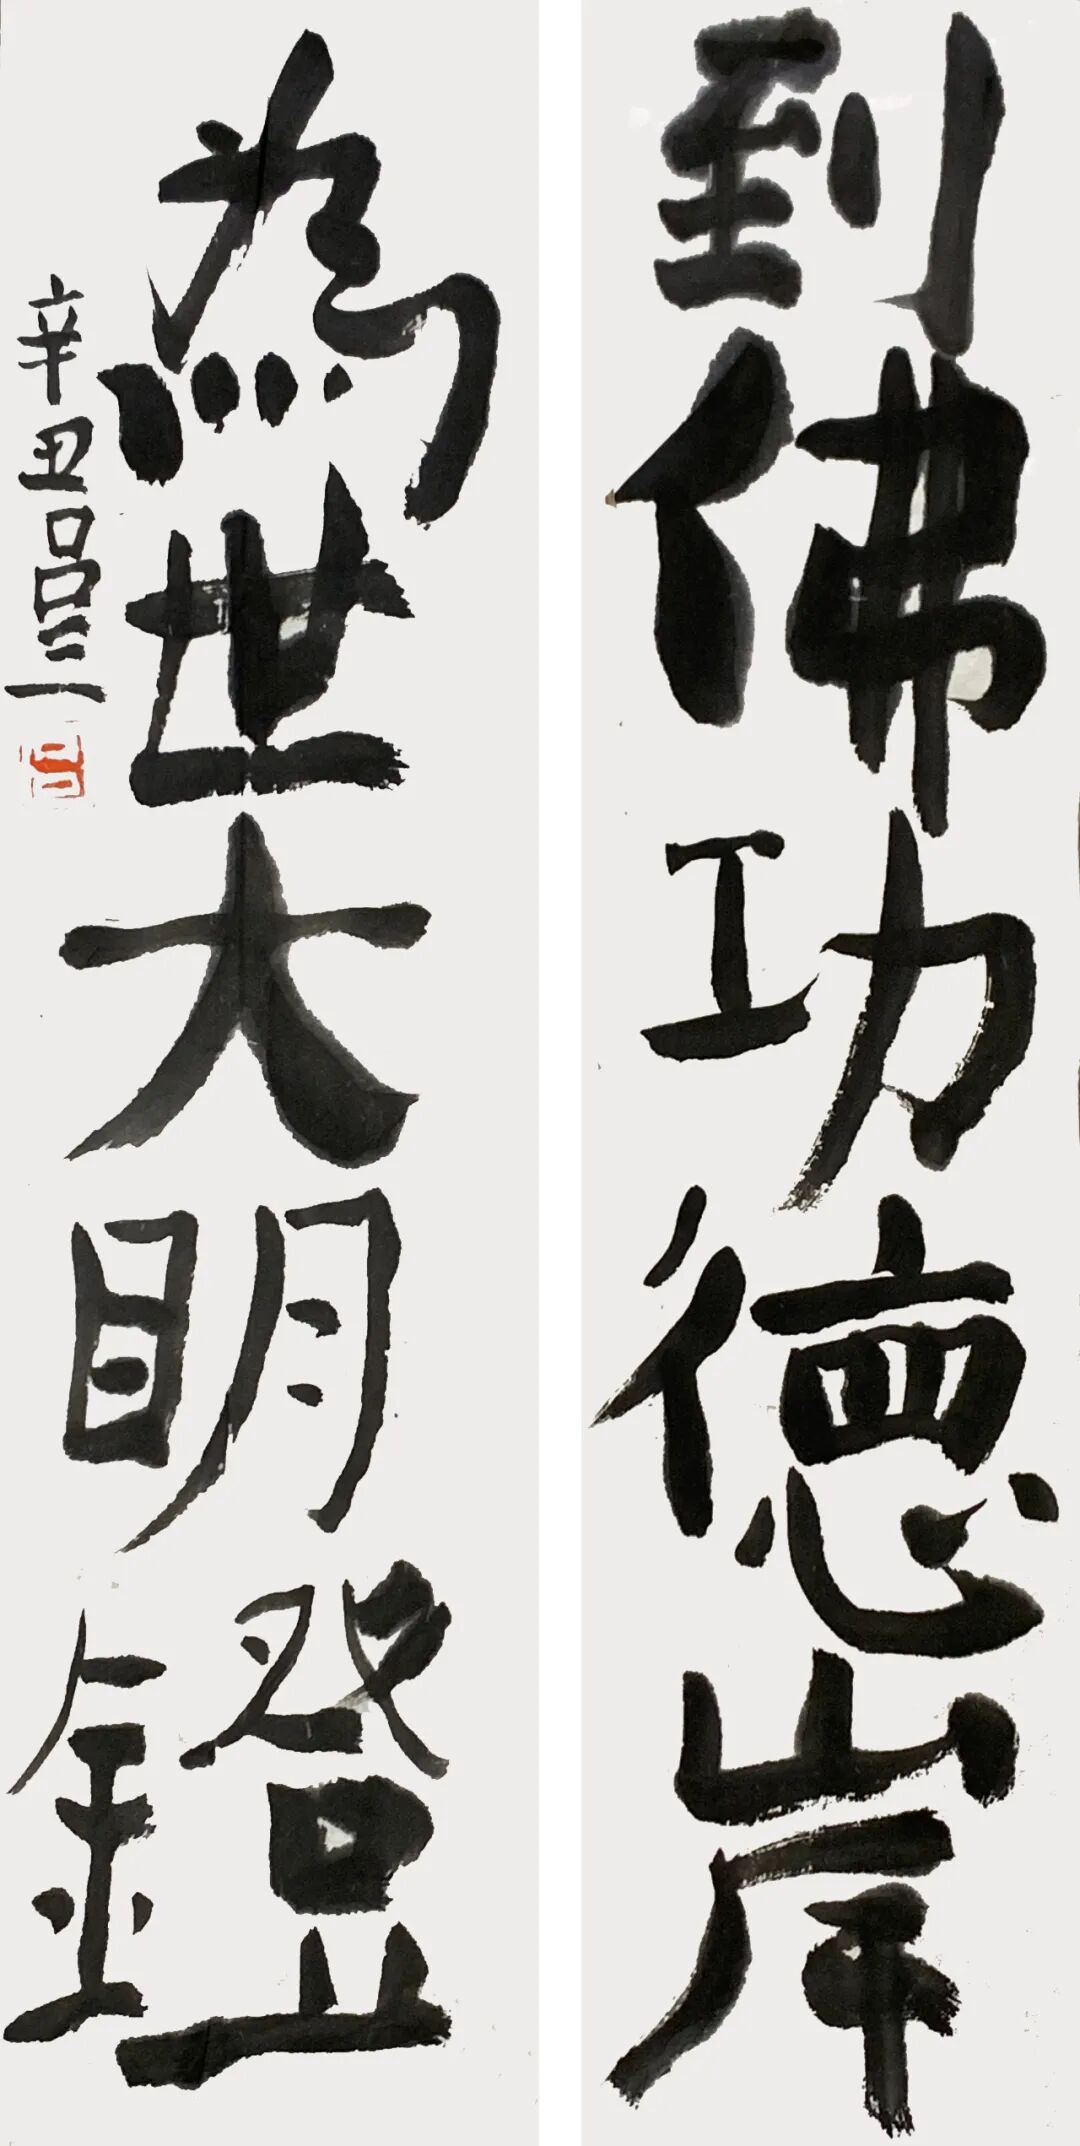 到佛功德岸
為世大明鐙
辛丑吕三